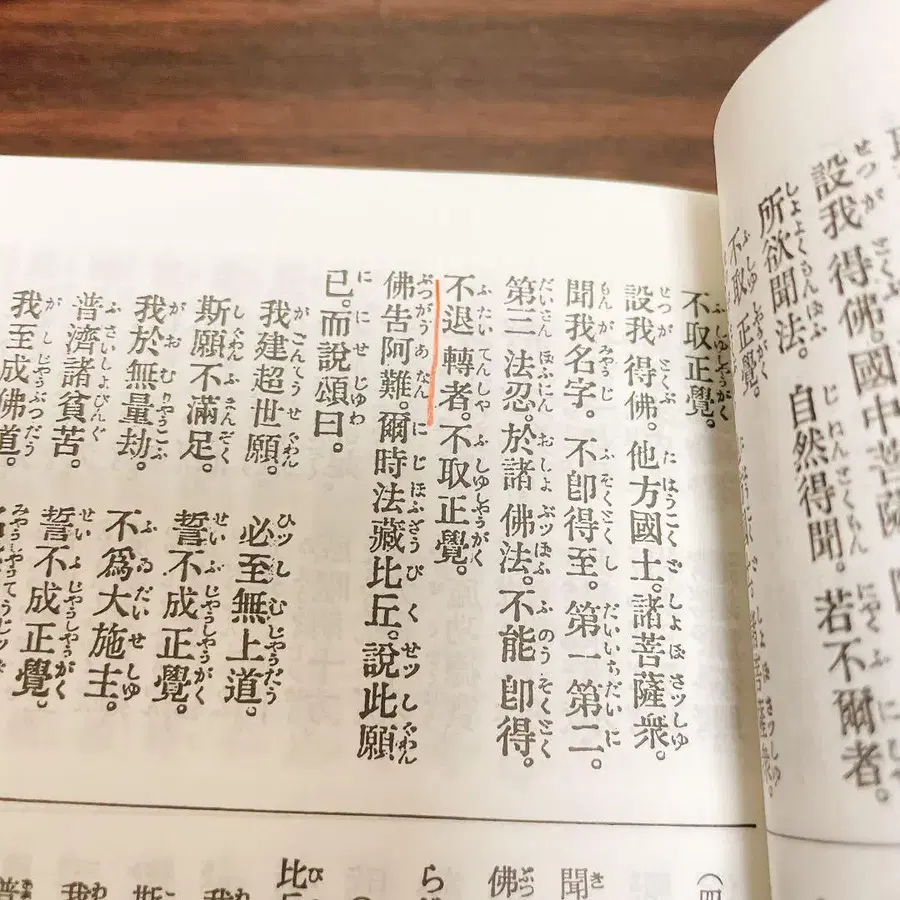 設我得佛。國中菩薩
所欲聞法。自然得聞。若不爾者。
不取正覺。
不取正覺。
設我得佛。他方國土。諸菩薩衆。
聞我名字。不卽得至。第一第二。
第三法忍。於諸佛法。不能卽得。
不退轉者。不取正覺。
佛告阿難。爾時法藏比丘。說此願
已。而說頌曰。
我建超世願。 必至無上道。
斯願不滿足。 誓不成正覺。
我於無量劫。 不爲大施主。
普濟諸貧苦。 誓不成正覺。
我至成佛道。 名
(四
聞
佛
ら
比丘
我